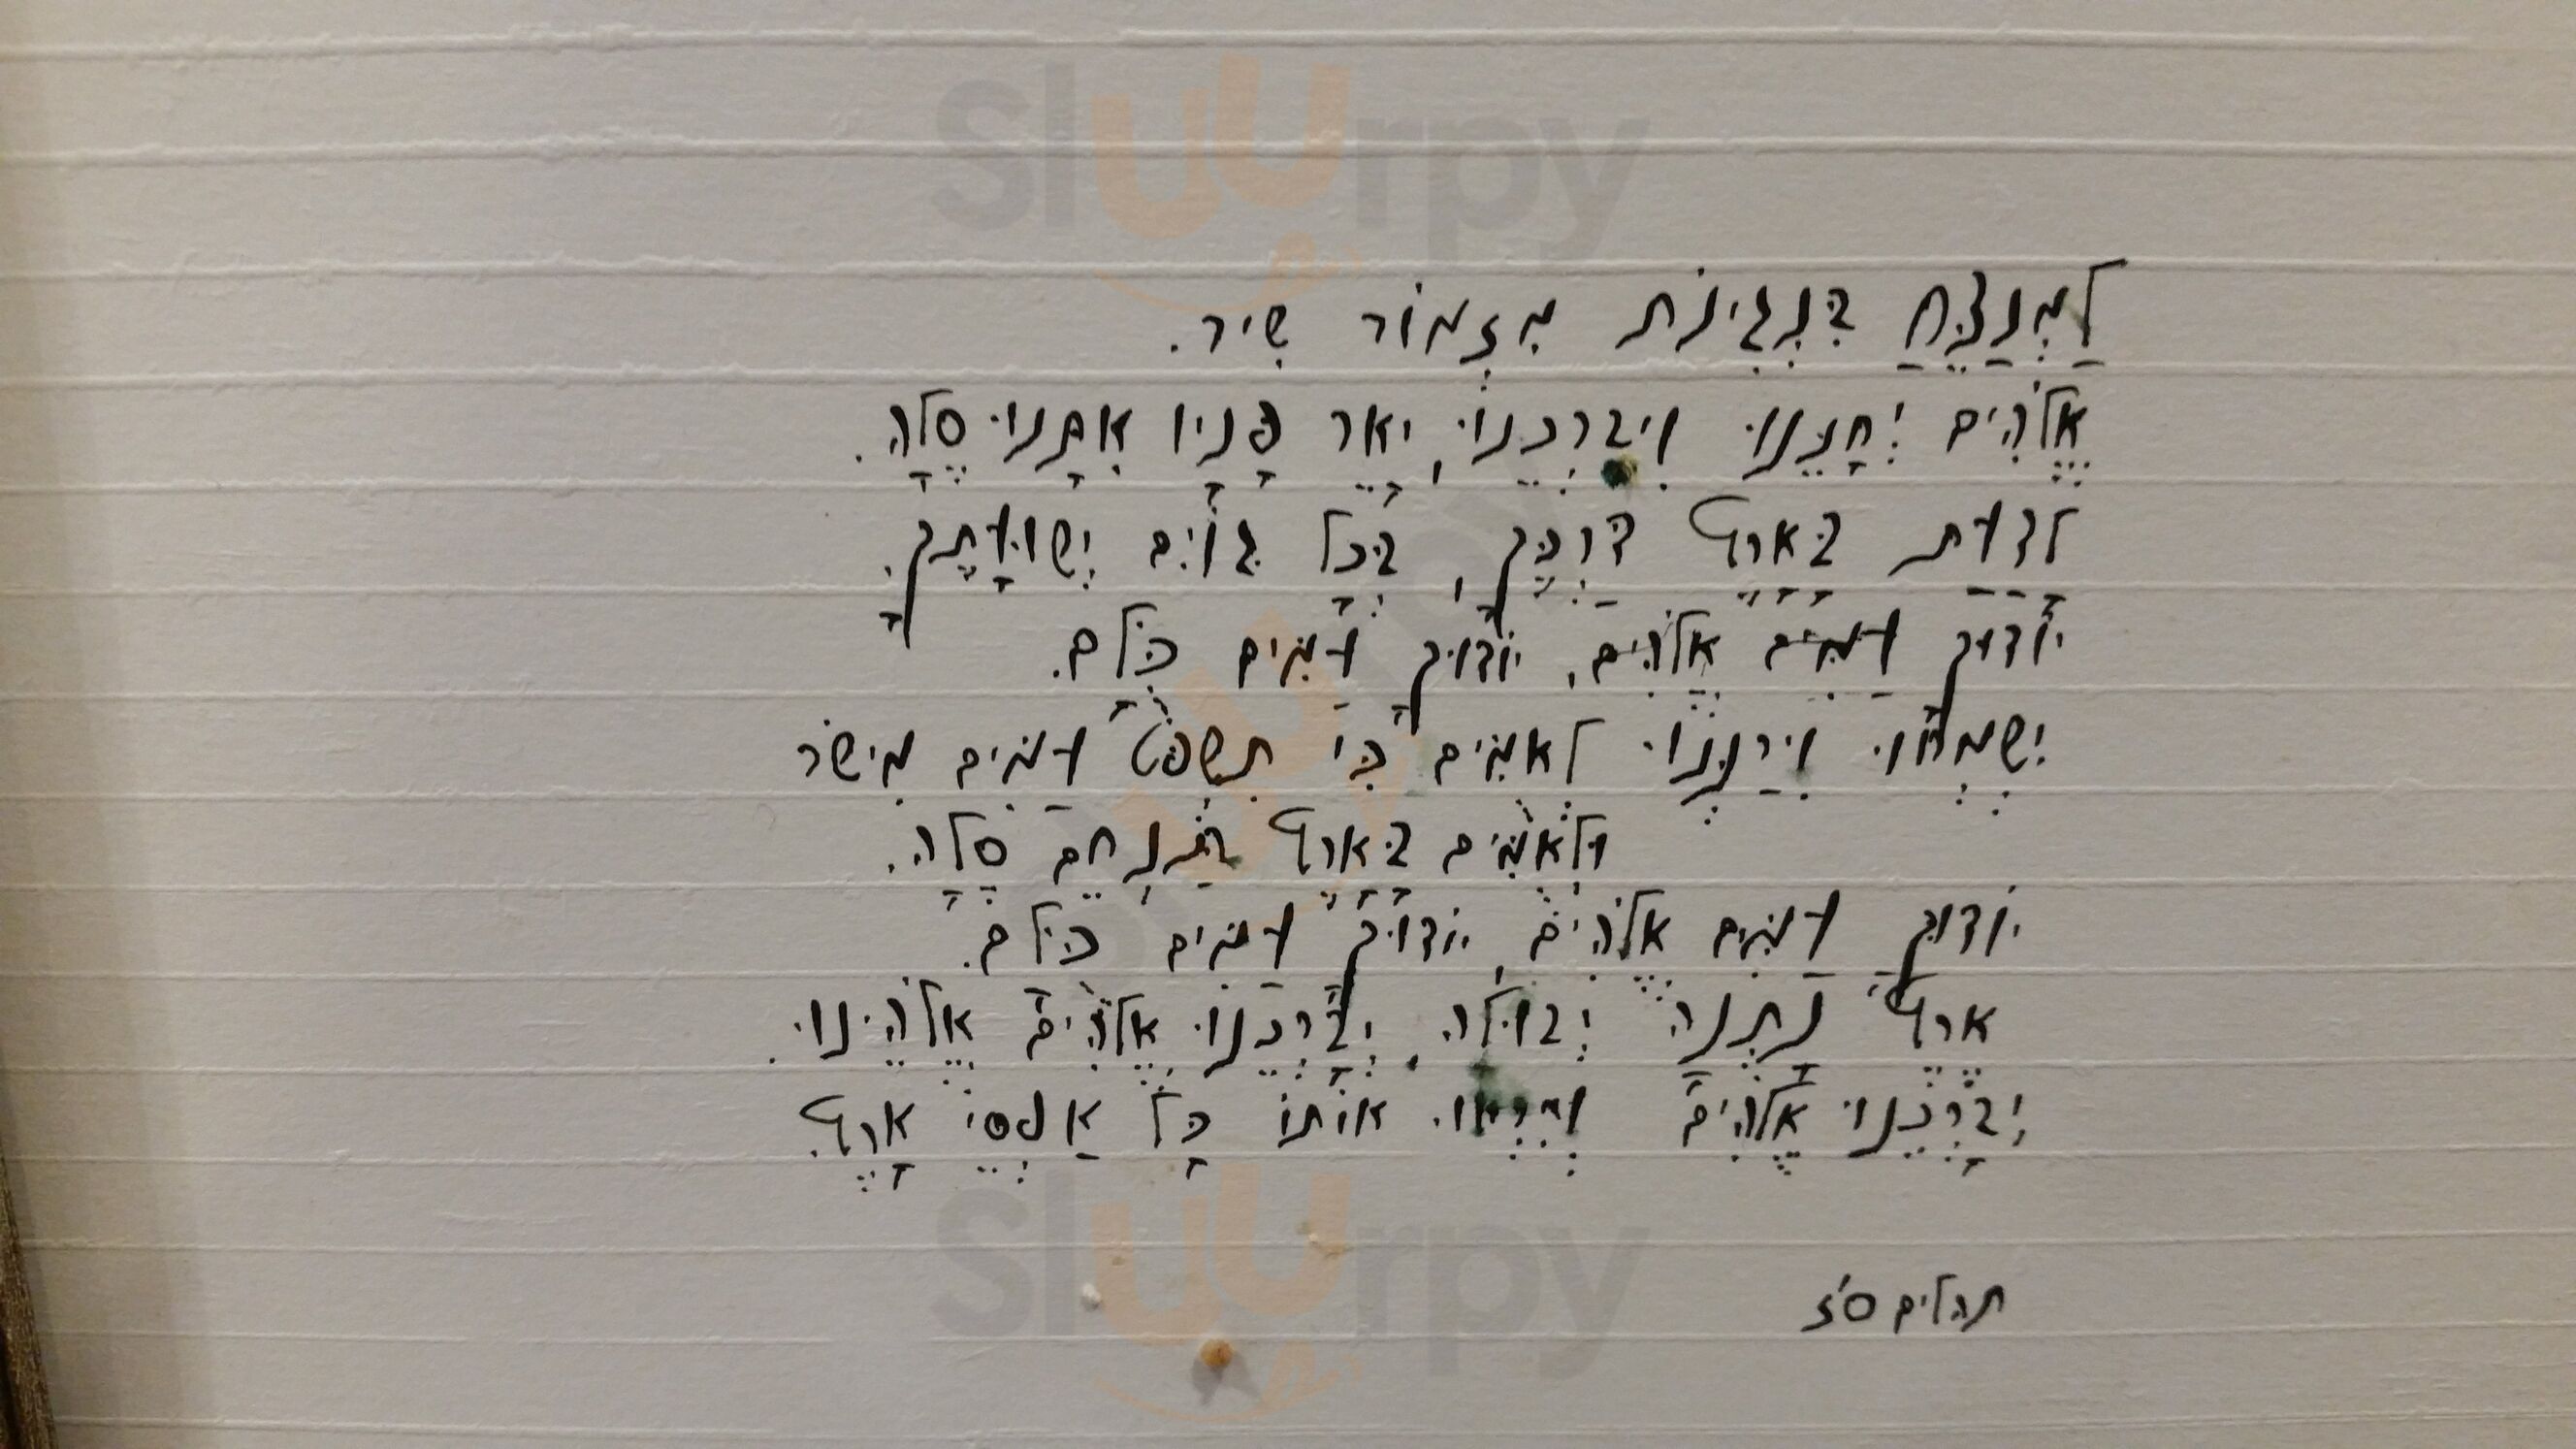 Sluurpy
לַמְנַצֵּחַ בִּנְגִינֹת מִזְמוֹר שִׁיר.
אֱלֹהִים יְחָנֵּנוּ וִיבָרְכֵנוּ, יָאֵר פָּנָיו אִתָּנוּ סֶלָה.
לָדַעַת בָּאָרֶץ דַּרְכֶּךָ, בְּכָל גּוֹיִם יְשׁוּעָתֶךָ.
יוֹדוּךָ עַמִּים אֱלֹהִים, יוֹדוּךָ עַמִּים כֻּלָּם.
יִשְׂמְחוּ וִירַנְּנוּ לְאֻמִּים כִּי תִשְׁפֹּט עַמִּים מִישֹׁר
וּלְאֻמִּים בָּאָרֶץ תַּנְחֵם סֶלָה.
יוֹדוּךָ עַמִּים אֱלֹהִים, יוֹדוּךָ עַמִּים כֻּלָּם.
אֶרֶץ נָתְנָה יְבוּלָהּ, יְבָרְכֵנוּ אֱלֹהִים אֱלֹהֵינוּ.
יְבָרְכֵנוּ אֱלֹהִים וְיִירְאוּ אוֹתוֹ כָּל אַפְסֵי אָרֶץ.
Sluurpy
תהלים ס'ז